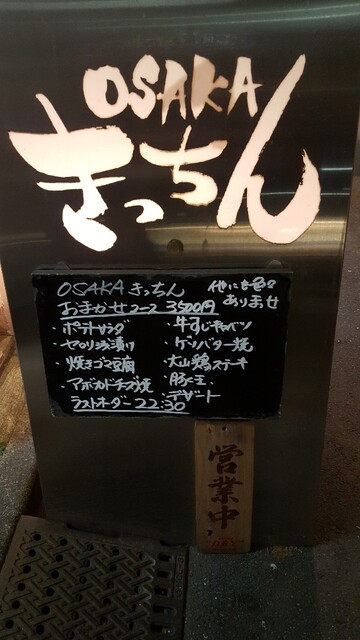 OSAKA
きっちん
OSAKA きっちん
他にも色々
ありませ
おまかせコース 3500円
・ポテトサラダ
・牛すじキャベツ
・セロリ浅漬け
・ゲソバター焼
・焼きゴマ豆腐
・大山鶏ステキ
・アボカドチーズ焼
・豚玉
・デザート
ラストオーダー 22:30
営業中